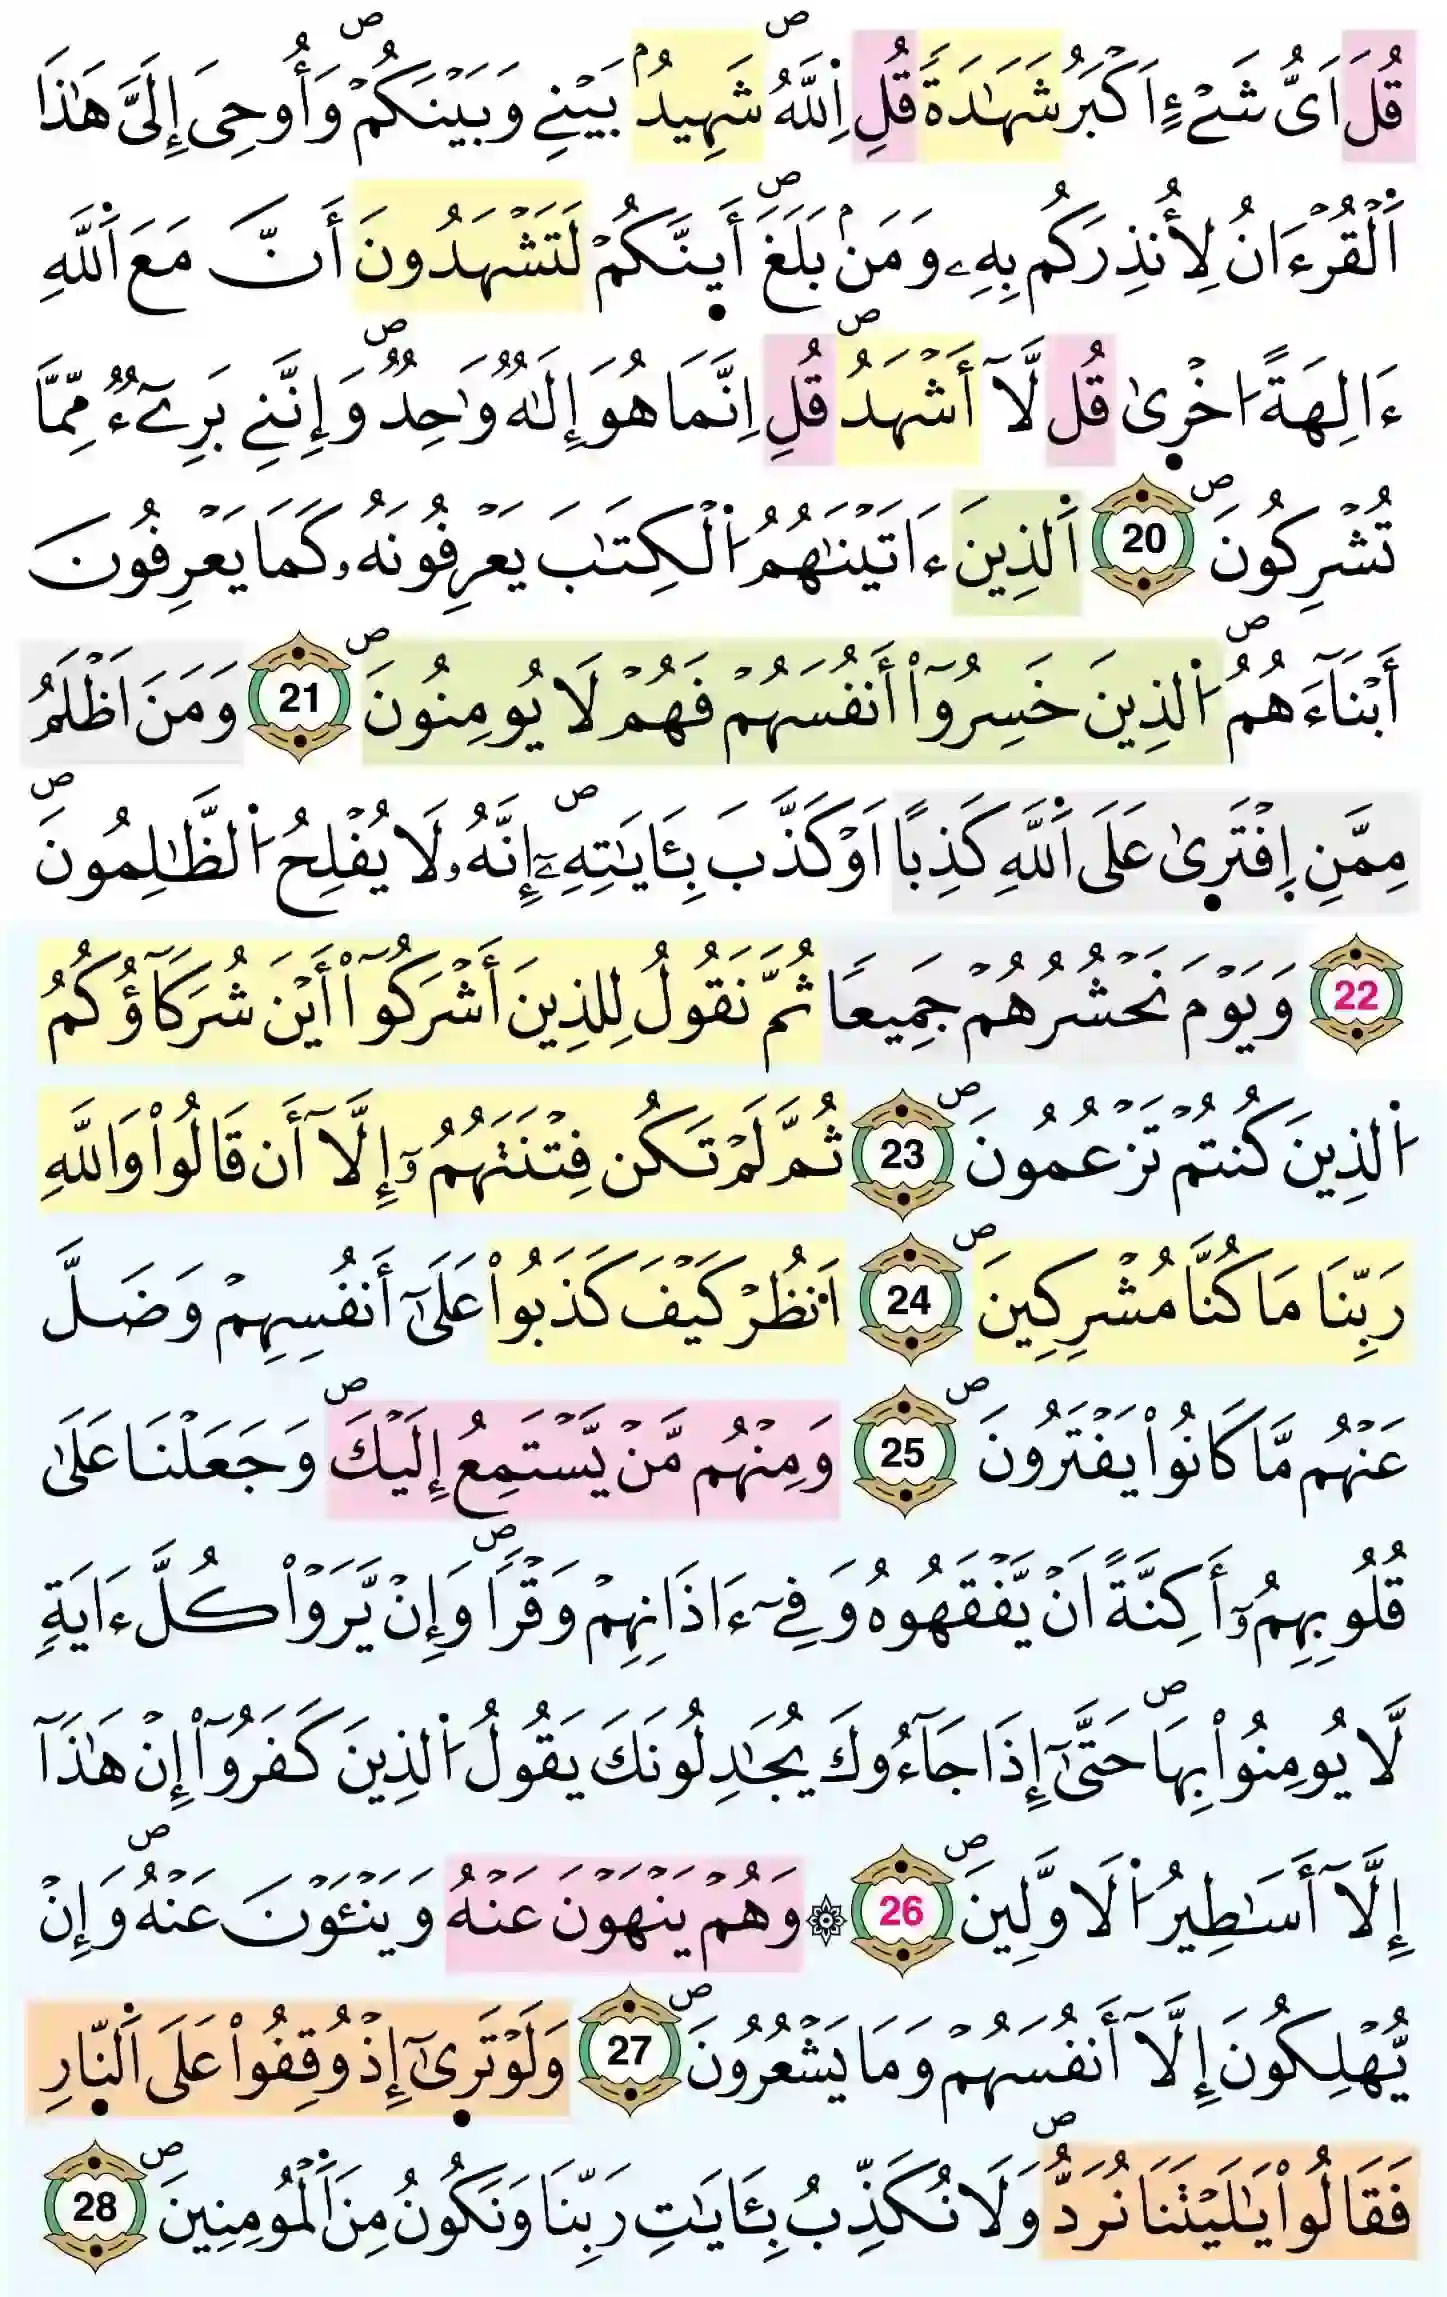 قُلَ اَیُّ شَےْءٍ اَكْبَرُ شَهَٰدَةً قُلِ اِ۬للَّهُ شَهِيدُۢ بَيْنِے وَبَيْنَكُمْ وَأُوحِيَ إِلَيَّ هَٰذَا
اَ۬لْقُرْءَانُ لِأُنذِرَكُم بِهِۦ وَمَنۢ بَلَغَ أَئِنَّكُمْ لَتَشْهَدُونَ أَنَّ مَعَ اَ۬للَّهِ
ءَالِهَةً ا۟خْر۪يٰ قُل لَّآ أَشْهَدُ قُلِ اِنَّمَا هُوَ إِلَٰهٞ وَٰحِدٞ وَإِنَّنِے بَرِےٓءٞ مِّمَّا
تُشْرِكُونَ 20 اَ۬لذِينَ ءَاتَيْنَٰهُمُ اُ۬لْكِتَٰبَ يَعْرِفُونَهُۥ كَمَا يَعْرِفُونَ
أَبْنَآءَهُمُ اُ۬لذِينَ خَسِرُوٓاْ أَنفُسَهُمْ فَهُمْ لَا يُومِنُونَ 21 وَمَنَ اَظْلَمُ
مِمَّنِ اِ۪فْتَر۪يٰ عَلَى اَ۬للَّهِ كَذِبًا اَوْ كَذَّبَ بِـَٔايَٰتِهِۦٓ إِنَّهُۥ لَا يُفْلِحُ اُ۬لظَّٰلِمُونَ
22 وَيَوْمَ نَحْشُرُهُمْ جَمِيعٗا ثُمَّ نَقُولُ لِلذِينَ أَشْرَكُوٓاْ أَيْنَ شُرَكَآؤُكُمُ
اُ۬لذِينَ كُنتُمْ تَزْعُمُونَ 23 ثُمَّ لَمْ تَكُن فِتْنَتَهُمُۥٓ إِلَّآ أَن قَالُواْ وَاللَّهِ
رَبِّنَا مَا كُنَّا مُشْرِكِينَ 24 اَ۟نظُرْ كَيْفَ كَذَبُواْ عَلَيٰٓ أَنفُسِهِمْ وَضَلَّ
عَنْهُم مَّا كَانُواْ يَفْتَرُونَ 25 وَمِنْهُم مَّنْ يَّسْتَمِعُ إِلَيْكَ وَجَعَلْنَا عَلَيٰ
قُلُوبِهِمُۥٓ أَكِنَّةً اَنْ يَّفْقَهُوهُ وَفِےٓ ءَاذَانِهِمْ وَقْراٗ وَإِنْ يَّرَوْاْ كُلَّ ءَايَةٖ
لَّا يُومِنُواْ بِهَا حَتَّيٰٓ إِذَا جَآءُوكَ يُجَٰدِلُونَكَ يَقُولُ اُ۬لذِينَ كَفَرُوٓاْ إِنْ هَٰذَآ
إِلَّآ أَسَٰطِيرُ اُ۬لَاوَّلِينَ 26 ۞ وَهُمْ يَنْهَوْنَ عَنْهُ وَيَنْـَٔوْنَ عَنْهُ وَإِنْ
يُّهْلِكُونَ إِلَّآ أَنفُسَهُمْ وَمَا يَشْعُرُونَ 27 وَلَوْ تَر۪يٰٓ إِذْ وُقِفُواْ عَلَى اَ۬لنّ۪ارِ
فَقَالُواْ يَٰلَيْتَنَا نُرَدُّ وَلَا نُكَذِّبُ بِـَٔايَٰتِ رَبِّنَا وَنَكُونُ مِنَ اَ۬لْمُومِنِينَ 28